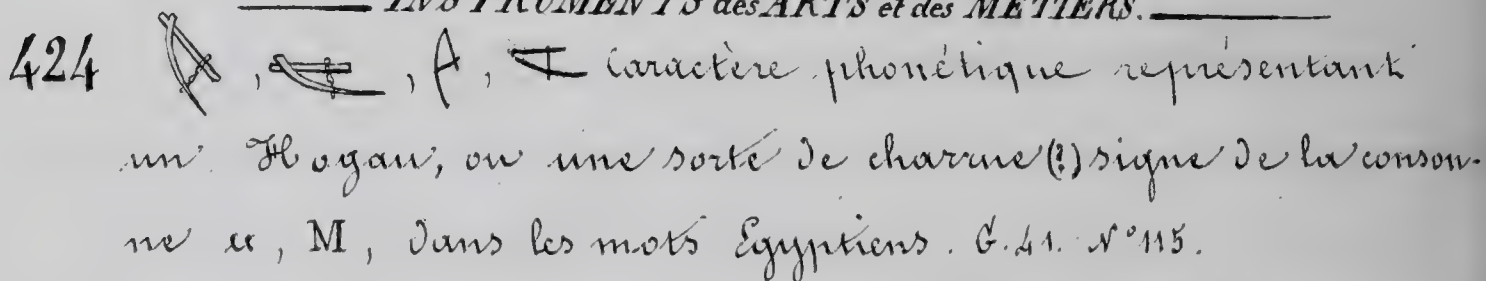 INSTRUMENTS des ARTS et des METIERS.
424 , , , Caractère phonétique représentant
un Hogau, ou une sorte de charrue (?) signe de la conson-
ne ⲙ, M, dans les mots Égyptiens. G. 41. N° 115.